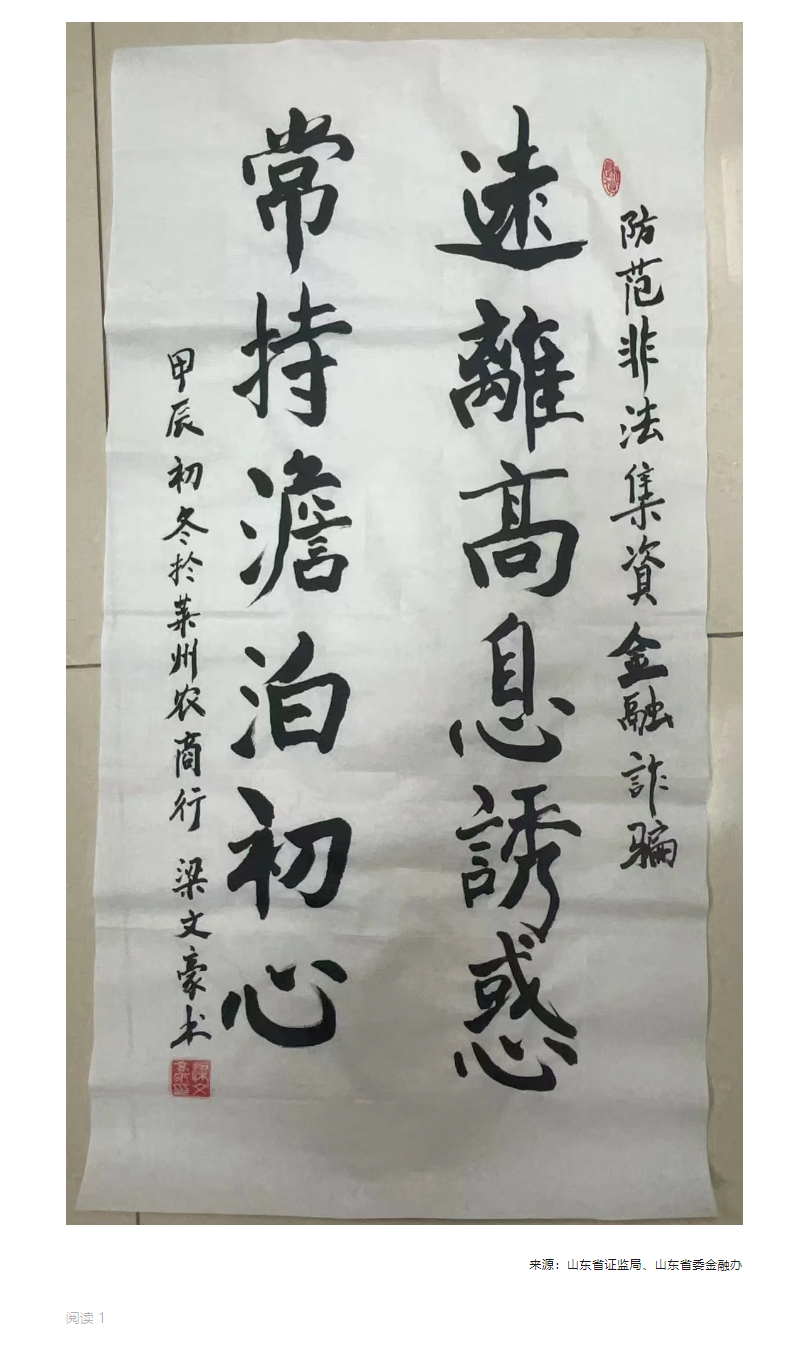 防范非法集資金融詐骗
远離高息誘惑
常持澹泊初心
甲辰初冬於莱州农商行 梁文豪书
梁文豪印
来源：山东省证监局、山东省委金融办
阅读 1